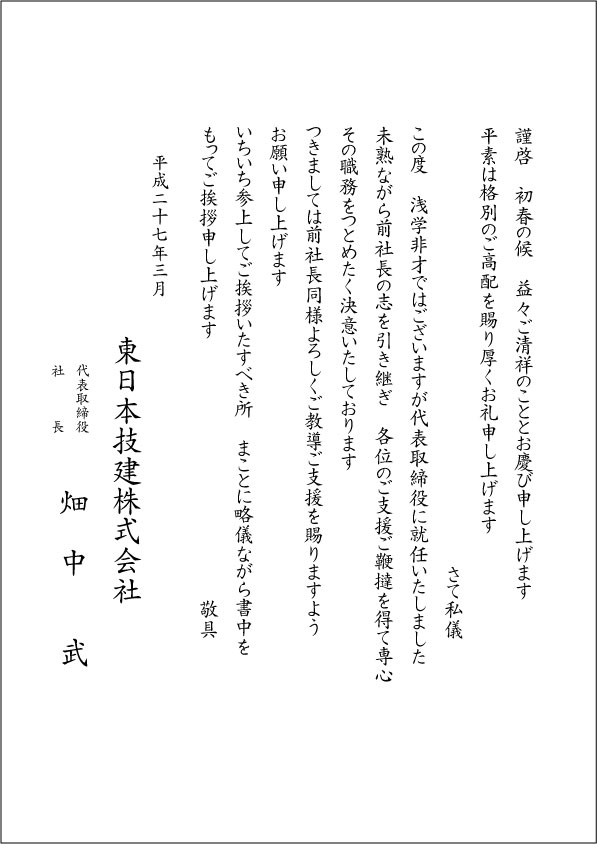 謹啓　初春の候　益々ご清祥のこととお慶び申し上げます
平素は格別のご高配を賜り厚くお礼申し上げます
さて私儀
この度　浅学非才ではございますが代表取締役に就任いたしました
未熟ながら前社長の志を引き継ぎ　各位のご支援ご鞭撻を得て専心
その職務をつとめたく決意いたしております
つきましては前社長同様よろしくご教導ご支援を賜りますよう
お願い申し上げます
いちいち参上してご挨拶いたすべき所　まことに略儀ながら書中を
もってご挨拶申し上げます　敬具
平成二十七年三月
東日本技建株式会社
代表取締役
社長　畑中武